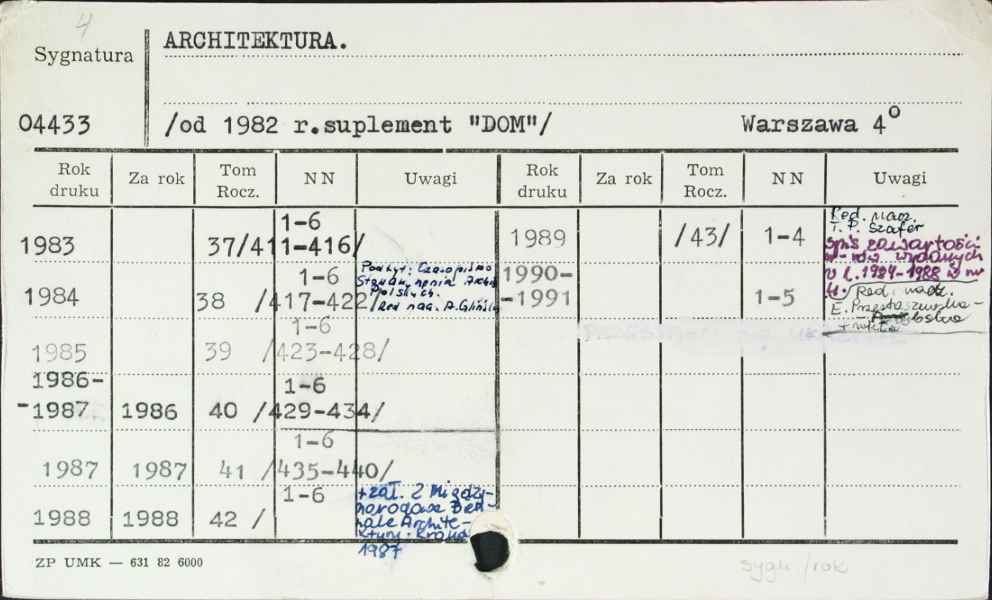 4
Sygnatura
ARCHITEKTURA.
04433
/od 1982 r.suplement "DOM"/ Warszawa 4°
Rok druku Za rok Tom Rocz. NN Uwagi Rok druku Za rok Tom Rocz. NN Uwagi
1-6
1983 37/411-416/
1989 /43/ 1-4
Red. nacz.
T. P. Szafer
spis zawartości
wydanych
w l. 1984-1988 w nr
4.
1-6
1984 38 /417-422/
Podtyt: Czasopismo
Polskich.
Red nacz. A. Gliński
1990-
-1991 1-5
Red. nacz.
E. Przestaszewska-
1-6
1985 39 /423-428/
1986-
1-6
-1987 1986 40 /429-434/
1-6
1987 1987 41 /435-440/
1-6
1988 1988 42 /
+zał. 2 Między-
narodowe Bien-
nale Archite-
ktury. Kraków
1987
ZP UMK — 631 82 6000
sygn /rok